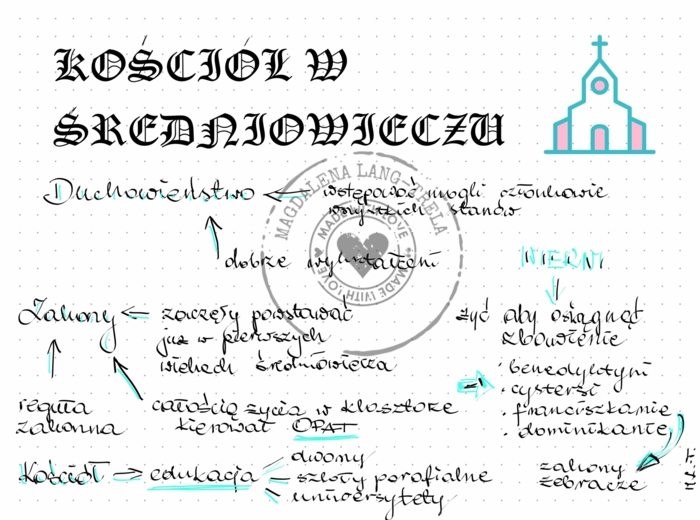 KOŚCIÓŁ W
ŚREDNIOWIECZU
Duchowieństwo
wstępować mogli członkowie
wszystkich stanów
dobrze wykształceni
MAGDALENA LANG-STRELA
MADE WITH LOVE
MADE WITH LOVE
WIERNI
żyć aby osiągnąć
zbawienie
Zakony
zaczęły powstawać
już w pierwszych
wiekach średniowiecza
reguła
zakonna
całością życia w klasztorze
kierował OPAT
· benedyktyni
· cystersi
· franciszkanie
· dominikanie
zakony
żebracze
Kościół
edukacja
dwory
szkoły parafialne
uniwersytety